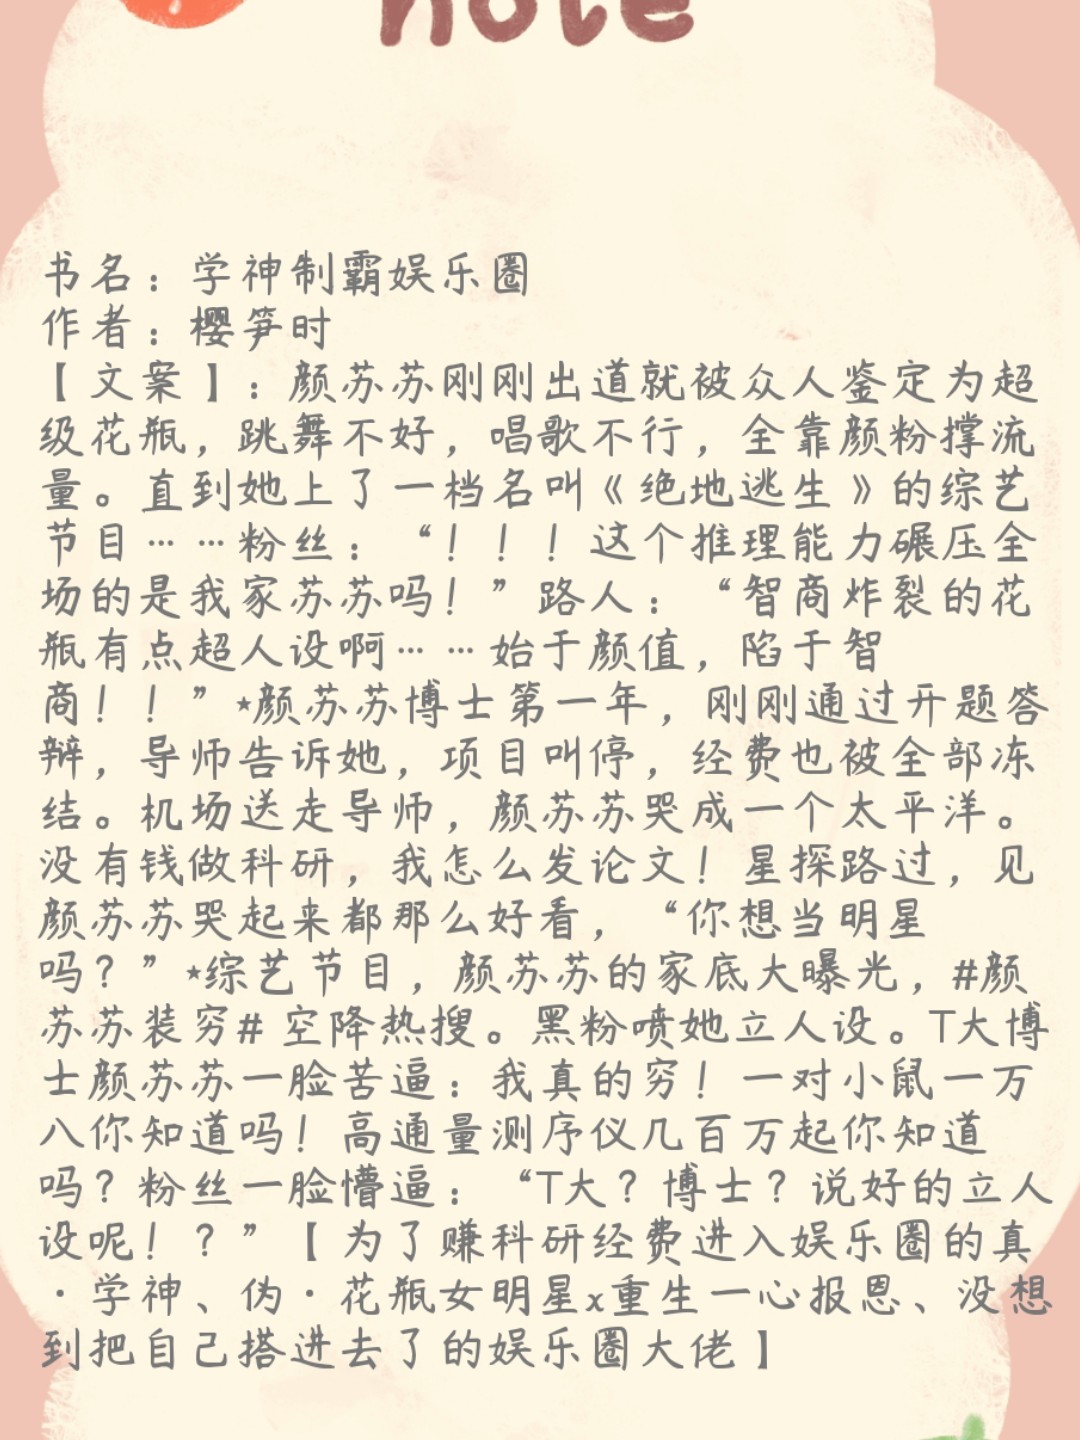 note
书名：学神制霸娱乐圈
作者：樱笋时
【文案】：颜苏苏刚刚出道就被众人鉴定为超
级花瓶，跳舞不好，唱歌不行，全靠颜粉撑流
量。直到她上了一档名叫《绝地逃生》的综艺
节目……粉丝：“！！！这个推理能力碾压全
场的是我家苏苏吗！”路人：“智商炸裂的花
瓶有点超人设啊……始于颜值，陷于智
商！！”⋆颜苏苏博士第一年，刚刚通过开题答
辩，导师告诉她，项目叫停，经费也被全部冻
结。机场送走导师，颜苏苏哭成一个太平洋。
没有钱做科研，我怎么发论文！星探路过，见
颜苏苏哭起来都那么好看，“你想当明星
吗？”⋆综艺节目，颜苏苏的家底大曝光，#颜
苏苏装穷# 空降热搜。黑粉喷她立人设。T大博
士颜苏苏一脸苦逼：我真的穷！一对小鼠一万
八你知道吗！高通量测序仪几百万起你知道
吗？粉丝一脸懵逼：“T大？博士？说好的立人
设呢！？”【为了赚科研经费进入娱乐圈的真
·学神、伪·花瓶女明星x重生一心报恩、没想
到把自己搭进去了的娱乐圈大佬】